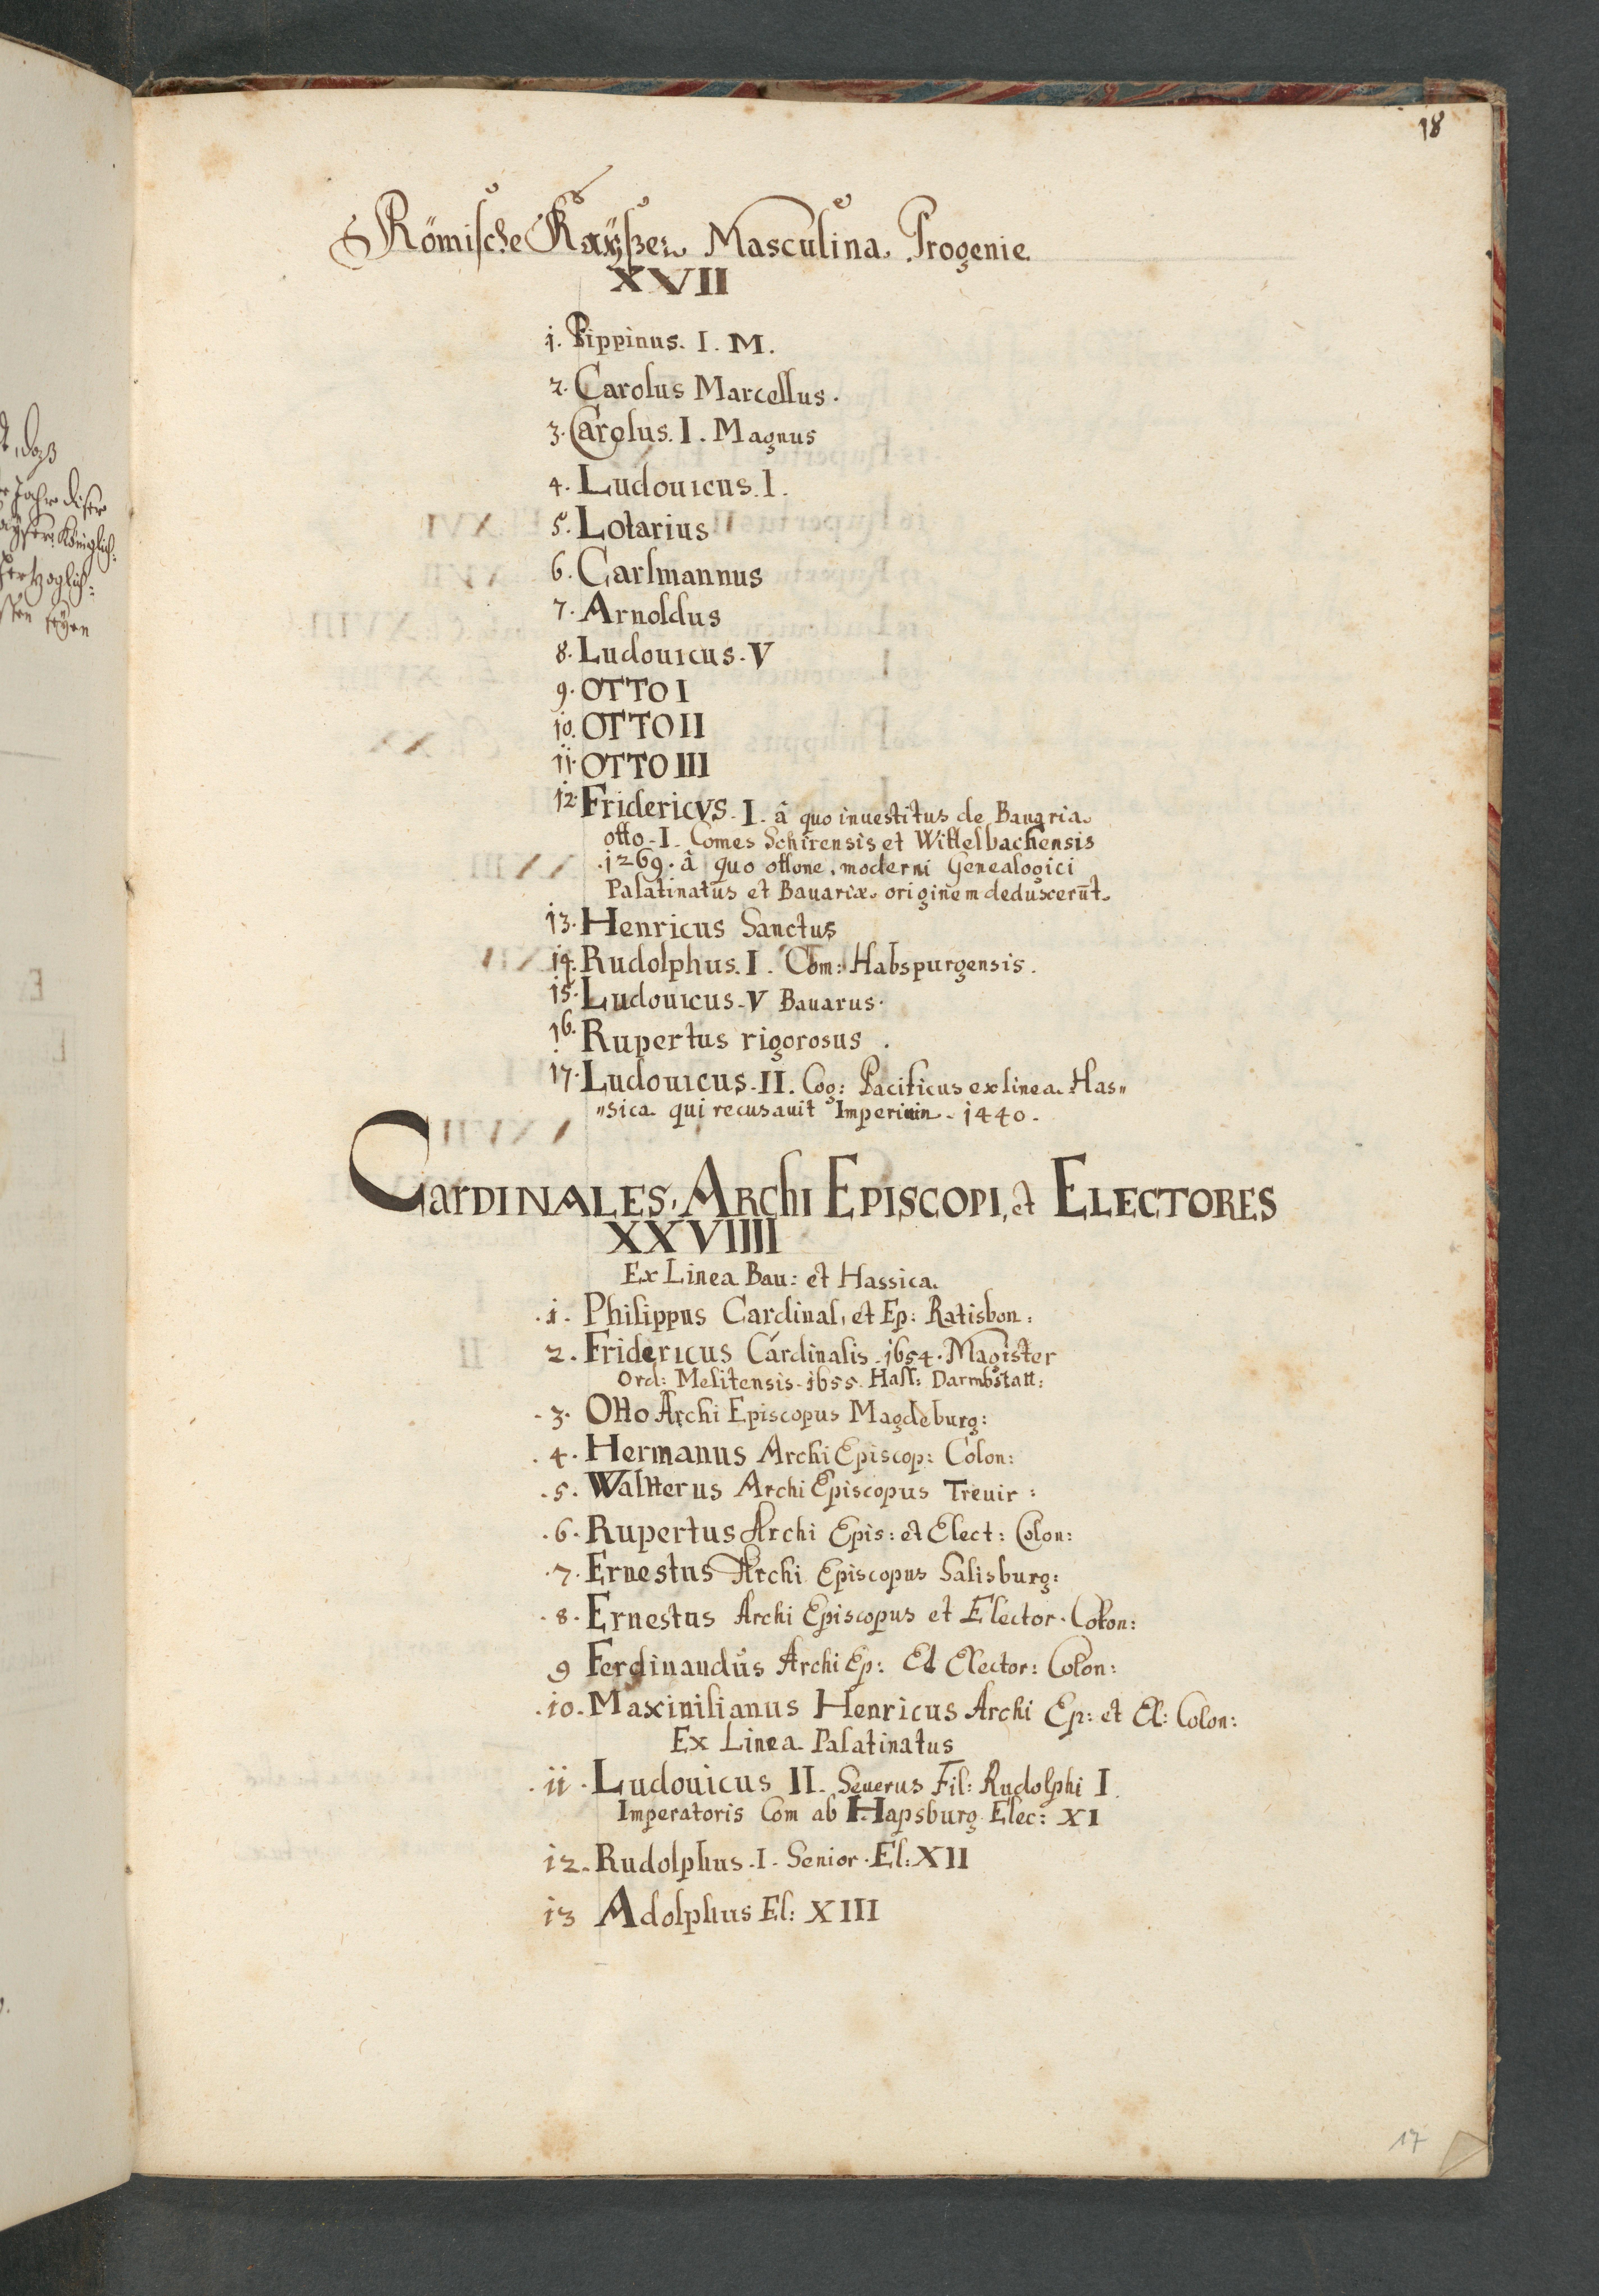 18
t, daß
Jahr diser
Königlich:
Hertzoglich:
seyen
Römische Kaÿßer Masculina Progenie
XVII
1. Pippinus. I. M.
2. Carolus Marcellus.
3. Carolus. I. Magnus
4. Ludouicus. I.
5. Lotarius
6. Carlmannus
7. Arnoldus
8. Ludouicus. V
9. OTTO I
10. OTTO II
11. OTTO III
12. Fridericvs. I. â quo inuestitus de Bauaria
otto. I. Comes Schirensis et Wittelbachensis
.1269. â quo ottone. moderni Genealogici
Palatinatus et Bauariæ originem deduscerūt.
13. Henricus Sanctus
14. Rudolphus. I. Com: Habspurgensis.
15. Ludouicus. V Bauarus.
16. Rupertus rigorosus.
17. Ludouicus. II. Cog: Pacificus ex linea Has„
„sica qui recusauit Imperium. 1440.
CarDINALES, ARchi EPISCOPI, et ELECTORES
XXVIIII
Ex Linea Bau: et Hassica.
.1. Philippus Cardinal, et Ep: Ratisbon:
2. Fridericus Cardinalis. 1654. Magister
Ord: Melitensis. 1655. Hass: Darmbstatt:
.3. Otto Archi Episcopus Magdeburg:
.4. Hermanus Archi Episcop: Colon:
.5. Waltterus Archi Episcopus Treuir:
.6. Rupertus Archi Epis: et Elect: Colon:
.7. Ernestus Archi Episcopus Salisburg:
.8. Ernestus Archi Episcopus et Elector. Colon:
9 Ferdinandus Archi Ep: Et Elector: Colon:
.10. Maxinilianus Henricus Archi Ep: et El: Colon:
Ex Linea Palatinatus
.11. Ludouicus II. Seuerus Fil: Rudolphi I.
Imperatoris Com ab Hapsburg Elec: XI
12. Rudolphus. I. Senior. El: XII
13 Adolphus El: XIII
17